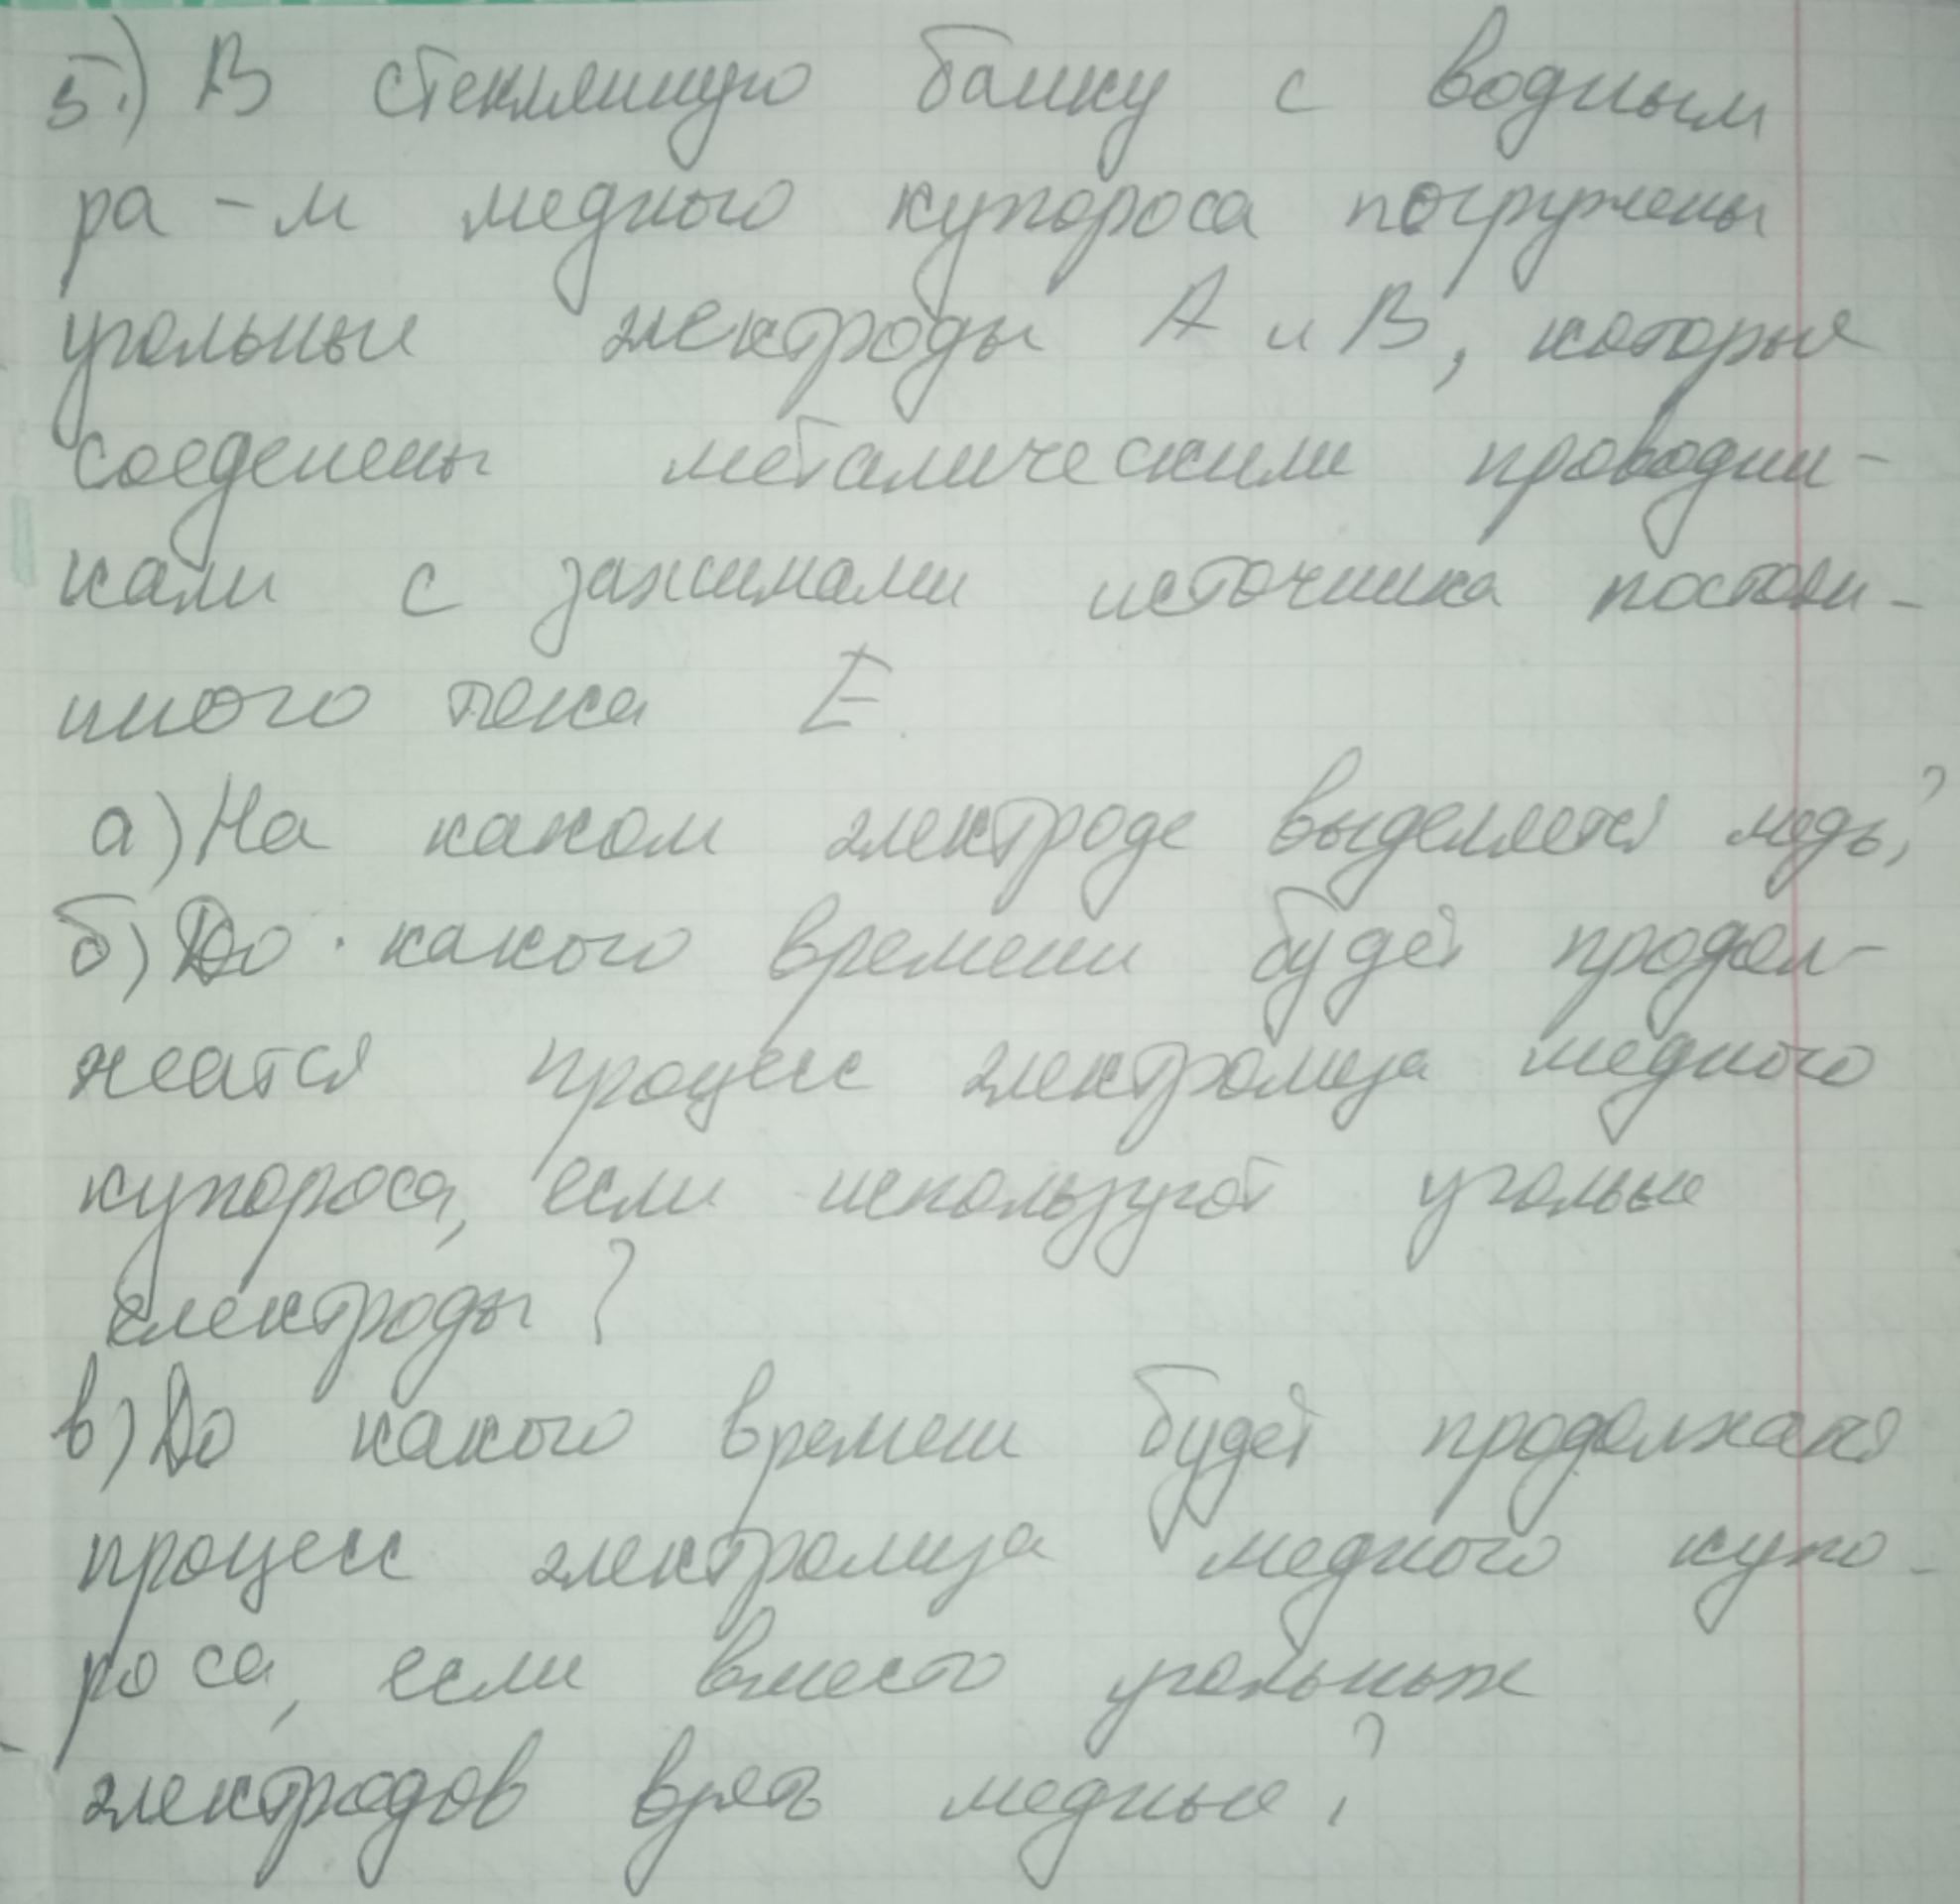 5.) В стеклянную банку с водным
ра-м медного купороса погружены
угольные электроды А и В, которые
соеденены металическими проводни-
ками с зажимами источника постоян-
нного тока E.
а) На каком электроде выделяется медь?
б) До какого времени будет продол-
жатся процесс электролиза медного
купороса, если используют угольые
електроды?
в) До какого времени будет продолжатся
процесс электролиза медного купо-
роса, если вместо угольных
электродов взять медные?